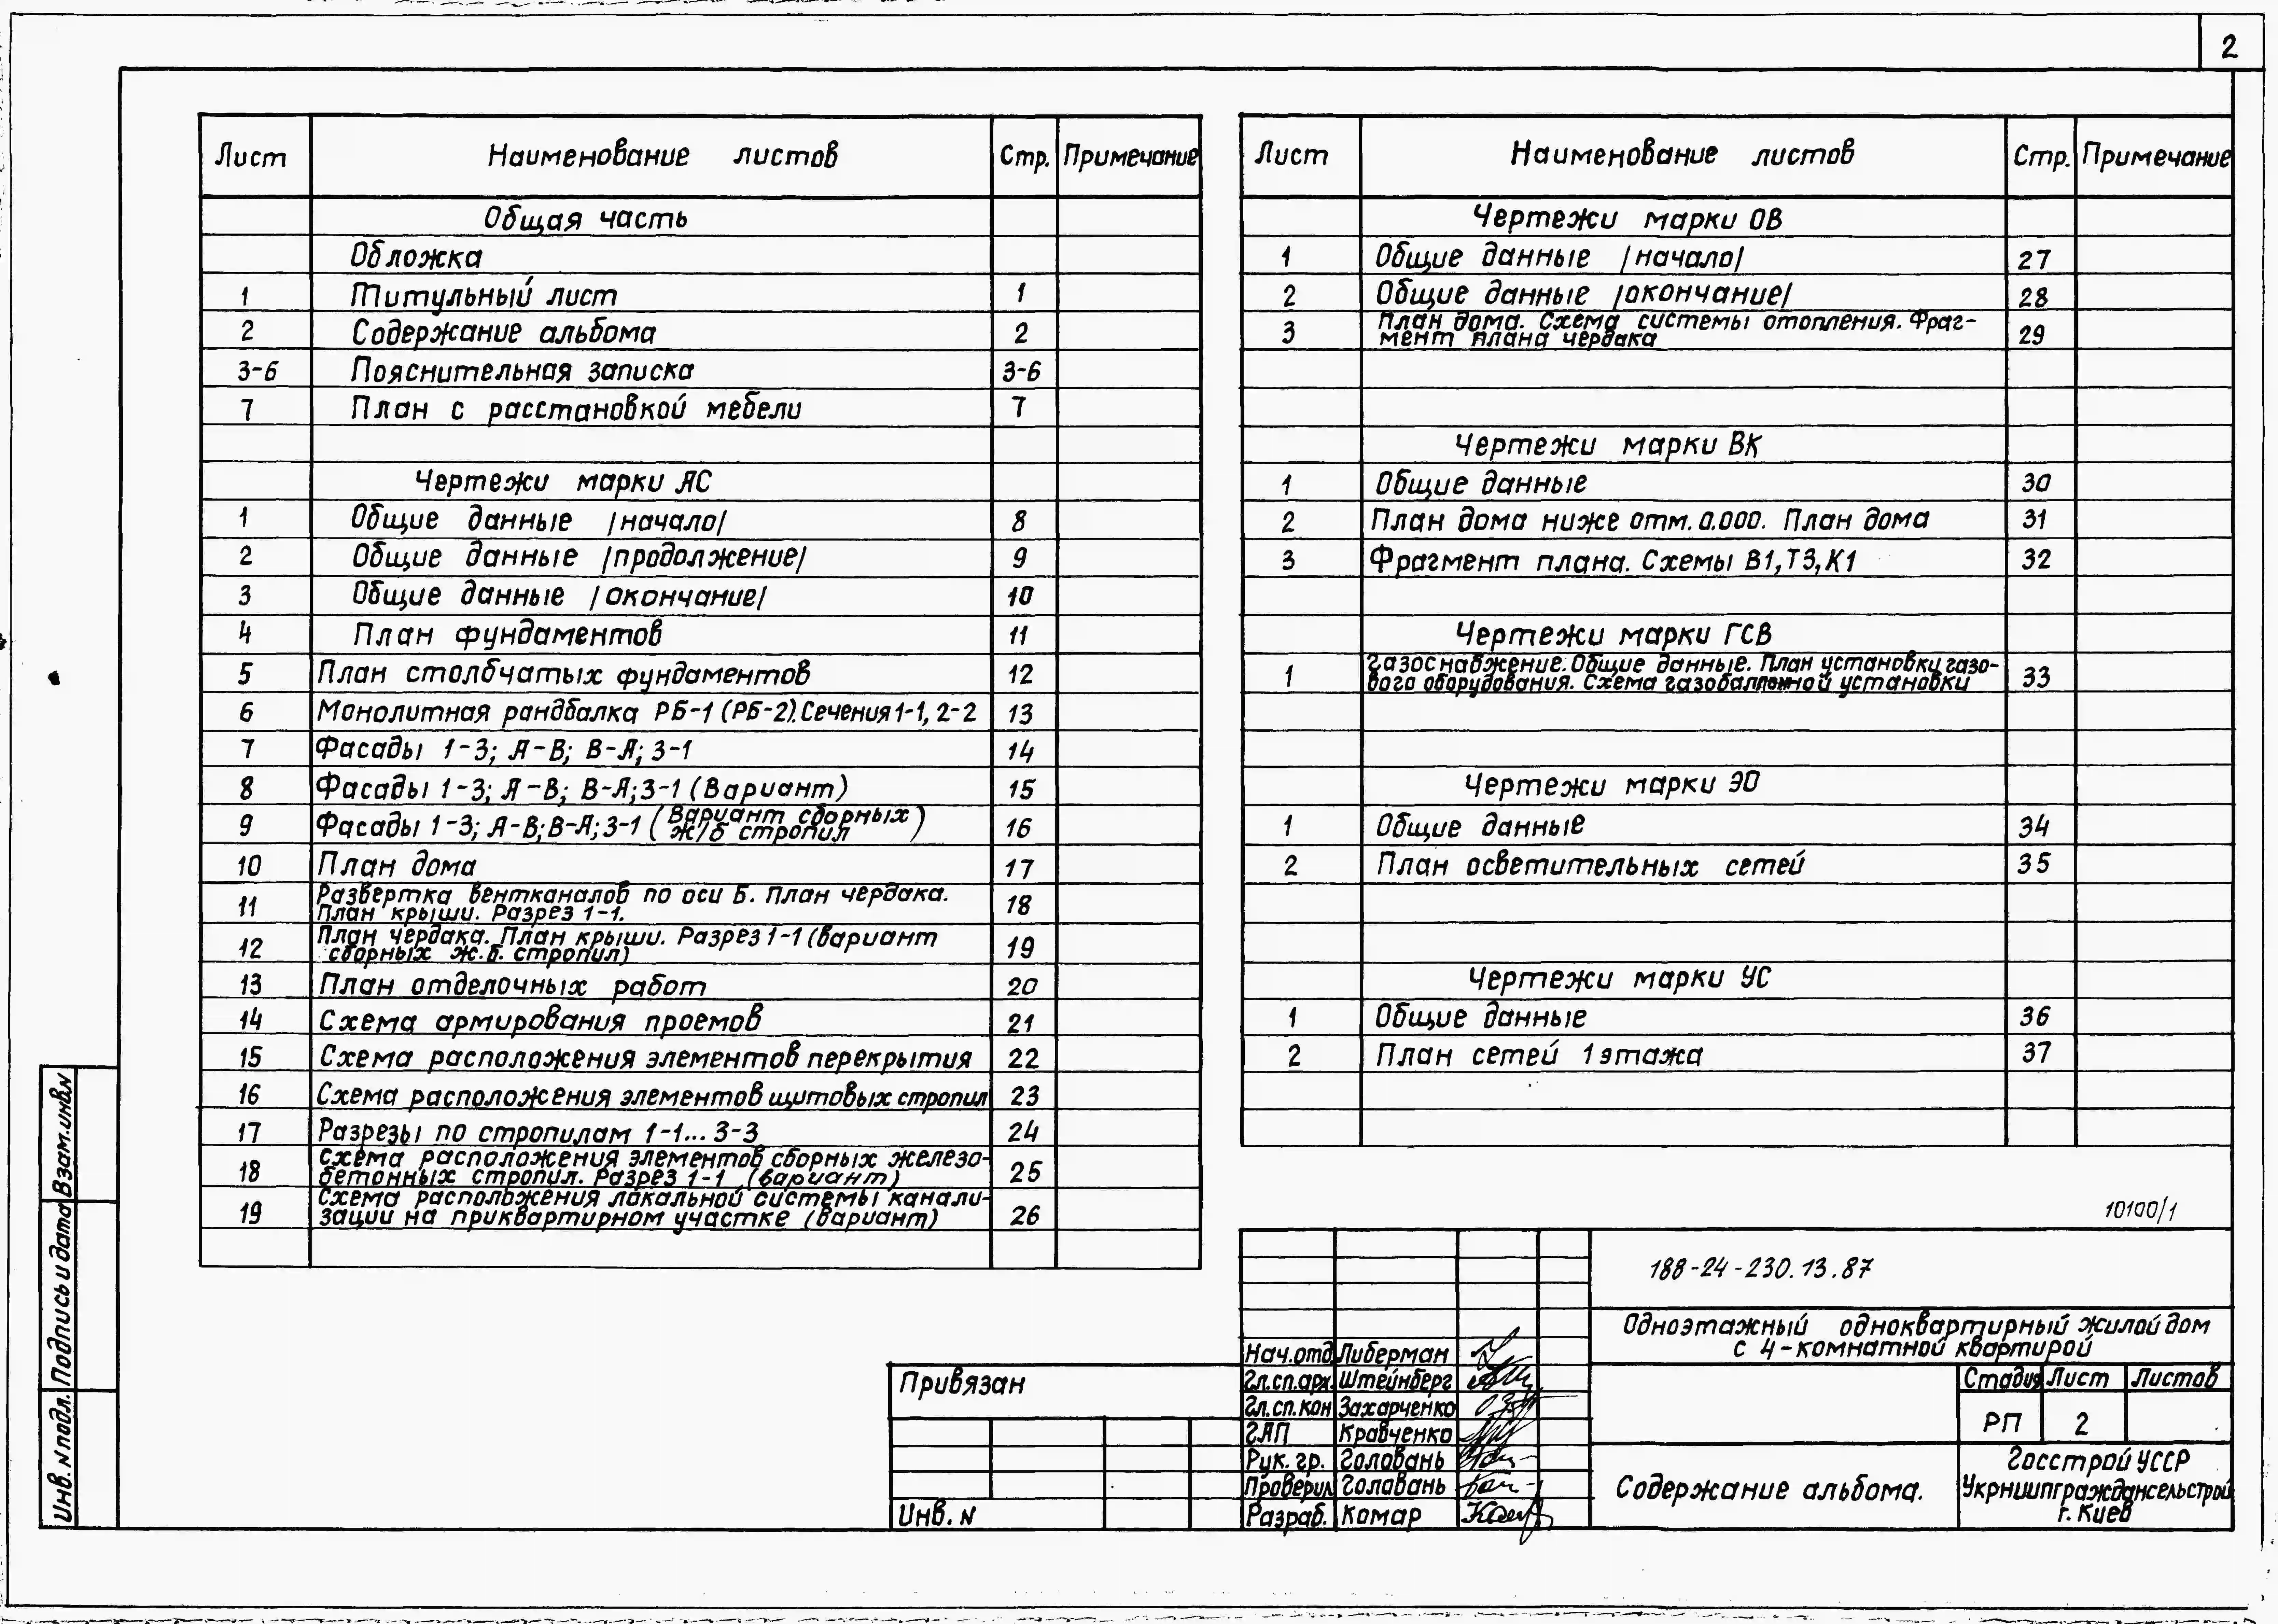 2
Лист Наименование листов Стр. Примечание
Общая часть
Обложка
1 Титульный лист 1
2 Содержание альбома 2
3-6 Пояснительная записка 3-6
7 План с расстановкой мебели 7
Чертежи марки АС
1 Общие данные /начало/ 8
2 Общие данные /продолжение/ 9
3 Общие данные /окончание/ 10
4 План фундаментов 11
5 План столбчатых фундаментов 12
6 Монолитная рандбалка РБ-1 (РБ-2). Сечения 1-1, 2-2 13
7 Фасады 1-3; А-В; В-А; 3-1 14
8 Фасады 1-3; А-В; В-А; 3-1 (Вариант) 15
9 Фасады 1-3; А-В; В-А; 3-1 (Вариант сборных
ж/б стропил) 16
10 План дома 17
11 Развертка вентканалов по оси Б. План чердака.
План крыши. Разрез 1-1. 18
12 План чердака. План крыши. Разрез 1-1 (вариант
сборных ж.б. стропил) 19
13 План отделочных работ 20
14 Схема армирования проемов 21
15 Схема расположения элементов перекрытия 22
16 Схема расположения элементов щитовых стропил 23
17 Разрезы по стропилам 1-1... 3-3 24
18 Схема расположения элементов сборных железо-
бетонных стропил. Разрез 1-1 (вариант) 25
19 Схема расположения локальной системы канали-
зации на приквартирном участке (вариант) 26
Лист Наименование листов Стр. Примечание
Чертежи марки ОВ
1 Общие данные /начало/ 27
2 Общие данные /окончание/ 28
3 План дома. Схема системы отопления. Фраг-
мент плана чердака 29
Чертежи марки ВК
1 Общие данные 30
2 План дома ниже отм. 0.000. План дома 31
3 Фрагмент плана. Схемы В1, Т3, К1 32
Чертежи марки ГСВ
1 Газоснабжение. Общие данные. План установки газо-
вого оборудования. Схема газобаллонной установки 33
Чертежи марки ЭО
1 Общие данные 34
2 План осветительных сетей 35
Чертежи марки УС
1 Общие данные 36
2 План сетей 1 этажа 37
10100/1
188-24-230.13.87
Одноэтажный одноквартирный жилой дом
с 4-комнатной квартирой
Нач.отд. Либерман
Гл.сп.арх. Штейнберг
Гл.сп.кон Захарченко
ГАП Кравченко
Рук. гр. Головань
Проверил Головань
Разраб. Комар
Стадия Лист Листов
РП 2
Содержание альбома.
Госстрой УССР
Укрниипграждансельстрой
г. Киев
Привязан
Инв. N
Взам.инв.N
Подпись и дата
Инв. N подл.